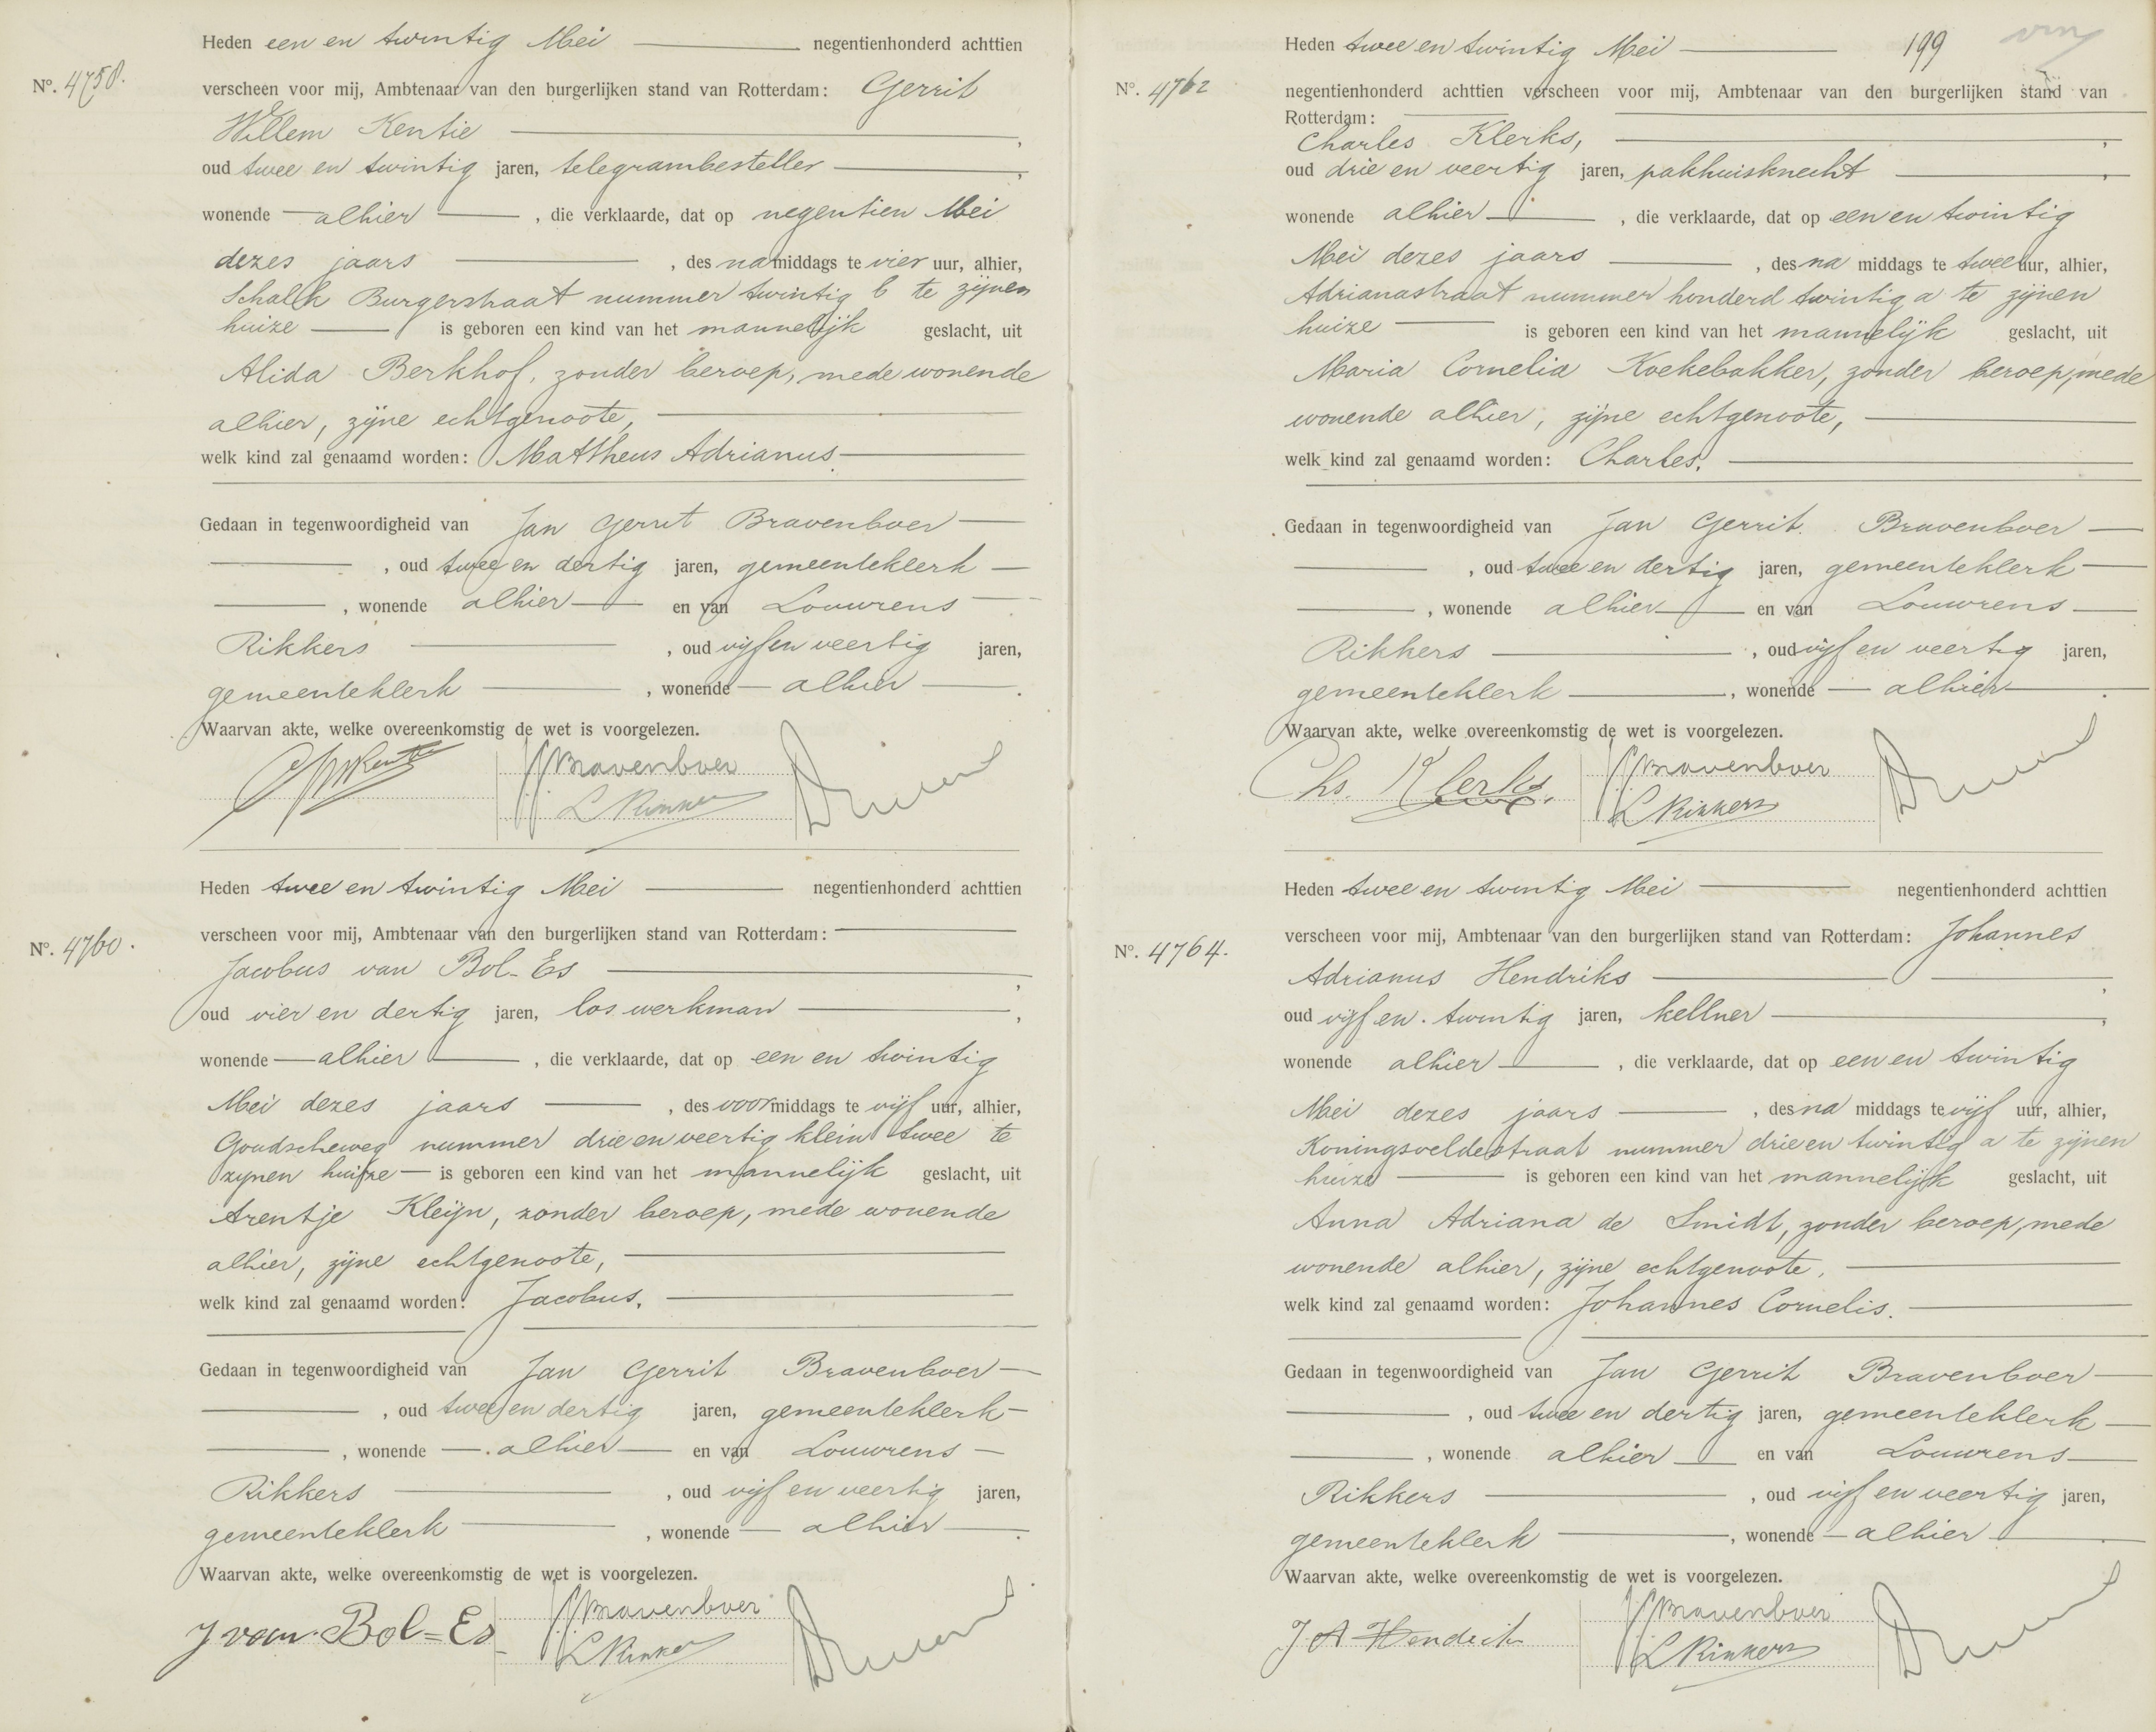 Heden een en twintig Mei negentienhonderd achttien
No. 4758.
verscheen voor mij, Ambtenaar van den burgerlijken stand van Rotterdam: Gerrit
Willem Kentie
oud twee en twintig jaren, telegrambesteller ,
wonende alhier , die verklaarde, dat op negentien Mei
dezes jaars , des namiddags te vier uur, alhier,
Schalk Burgerstraat nummer twintig b te zijnen
huize is geboren een kind van het mannelijk geslacht, uit
Alida Berkhof, zonder beroep, mede wonende
alhier, zijne echtgenoote,
welk kind zal genaamd worden: Mattheus Adrianus.
Gedaan in tegenwoordigheid van Jan Gerrit Bravenboer
, oud twee en dertig jaren, gemeenteklerk
, wonende alhier en van Louwrens
Rikkers , oud vijf en veertig jaren,
gemeenteklerk , wonende alhier .
Waarvan akte, welke overeenkomstig de wet is voorgelezen.
GWKentie
JGBravenboer
L Rikkers
Heden twee en twintig Mei negentienhonderd achttien
verscheen voor mij, Ambtenaar van den burgerlijken stand van Rotterdam:
No. 4760.
Jacobus van Bol-Es ,
oud vier en dertig jaren, los werkman ,
wonende alhier , die verklaarde, dat op een en twintig
Mei dezes jaars , des voormiddags te vijf uur, alhier,
Goudscheweg nummer drie en veertig klein twee te
zijnen huize is geboren een kind van het mannelijk geslacht, uit
Arentje Kleijn, zonder beroep, mede wonende
alhier, zijne echtgenoote,
welk kind zal genaamd worden: Jacobus.
Gedaan in tegenwoordigheid van Jan Gerrit Bravenboer
, oud twee en dertig jaren, gemeenteklerk
, wonende alhier en van Louwrens
Rikkers , oud vijf en veertig jaren,
gemeenteklerk , wonende alhier .
Waarvan akte, welke overeenkomstig de wet is voorgelezen.
J van Bol=Es
JGBravenboer
L Rikkers
Heden twee en twintig Mei 199
No. 4762
negentienhonderd achttien verscheen voor mij, Ambtenaar van den burgerlijken stand van
Rotterdam:
Charles Klerks, ,
oud drie en veertig jaren, pakhuisknecht ,
wonende alhier , die verklaarde, dat op een en twintig
Mei dezes jaars , des na middags te twee uur, alhier,
Adrianastraat nummer honderd twintig a te zijnen
huize is geboren een kind van het mannelijk geslacht, uit
Maria Cornelia Koekebakker, zonder beroep, mede
wonende alhier, zijne echtgenoote,
welk kind zal genaamd worden: Charles.
Gedaan in tegenwoordigheid van Jan Gerrit Bravenboer
, oud twee en dertig jaren, gemeenteklerk
, wonende alhier en van Louwrens
Rikkers , oud vijf en veertig jaren,
gemeenteklerk , wonende alhier .
Waarvan akte, welke overeenkomstig de wet is voorgelezen.
Chs. Klerks.
JGBravenboer
L Rikkers
Heden twee en twintig Mei negentienhonderd achttien
verscheen voor mij, Ambtenaar van den burgerlijken stand van Rotterdam: Johannes
No. 4764.
Adrianus Hendriks ,
oud vijf en twintig jaren, kellner ,
wonende alhier , die verklaarde, dat op een en twintig
Mei dezes jaars , des na middags te vijf uur, alhier,
Koningsveldestraat nummer drie en twintig a te zijnen
huize is geboren een kind van het mannelijk geslacht, uit
Anna Adriana de Smidt, zonder beroep, mede
wonende alhier, zijne echtgenoote,
welk kind zal genaamd worden: Johannes Cornelis.
Gedaan in tegenwoordigheid van Jan Gerrit Bravenboer
, oud twee en dertig jaren, gemeenteklerk
, wonende alhier en van Louwrens
Rikkers , oud vijf en veertig jaren,
gemeenteklerk , wonende alhier .
Waarvan akte, welke overeenkomstig de wet is voorgelezen.
J A Hendriks
JGBravenboer
L Rikkers